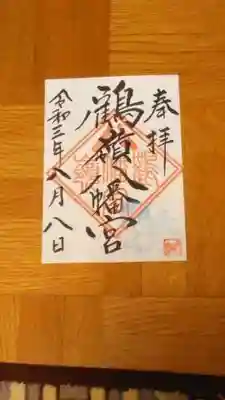 奉拝
鶴嶺八幡宮
令和三年八月八日